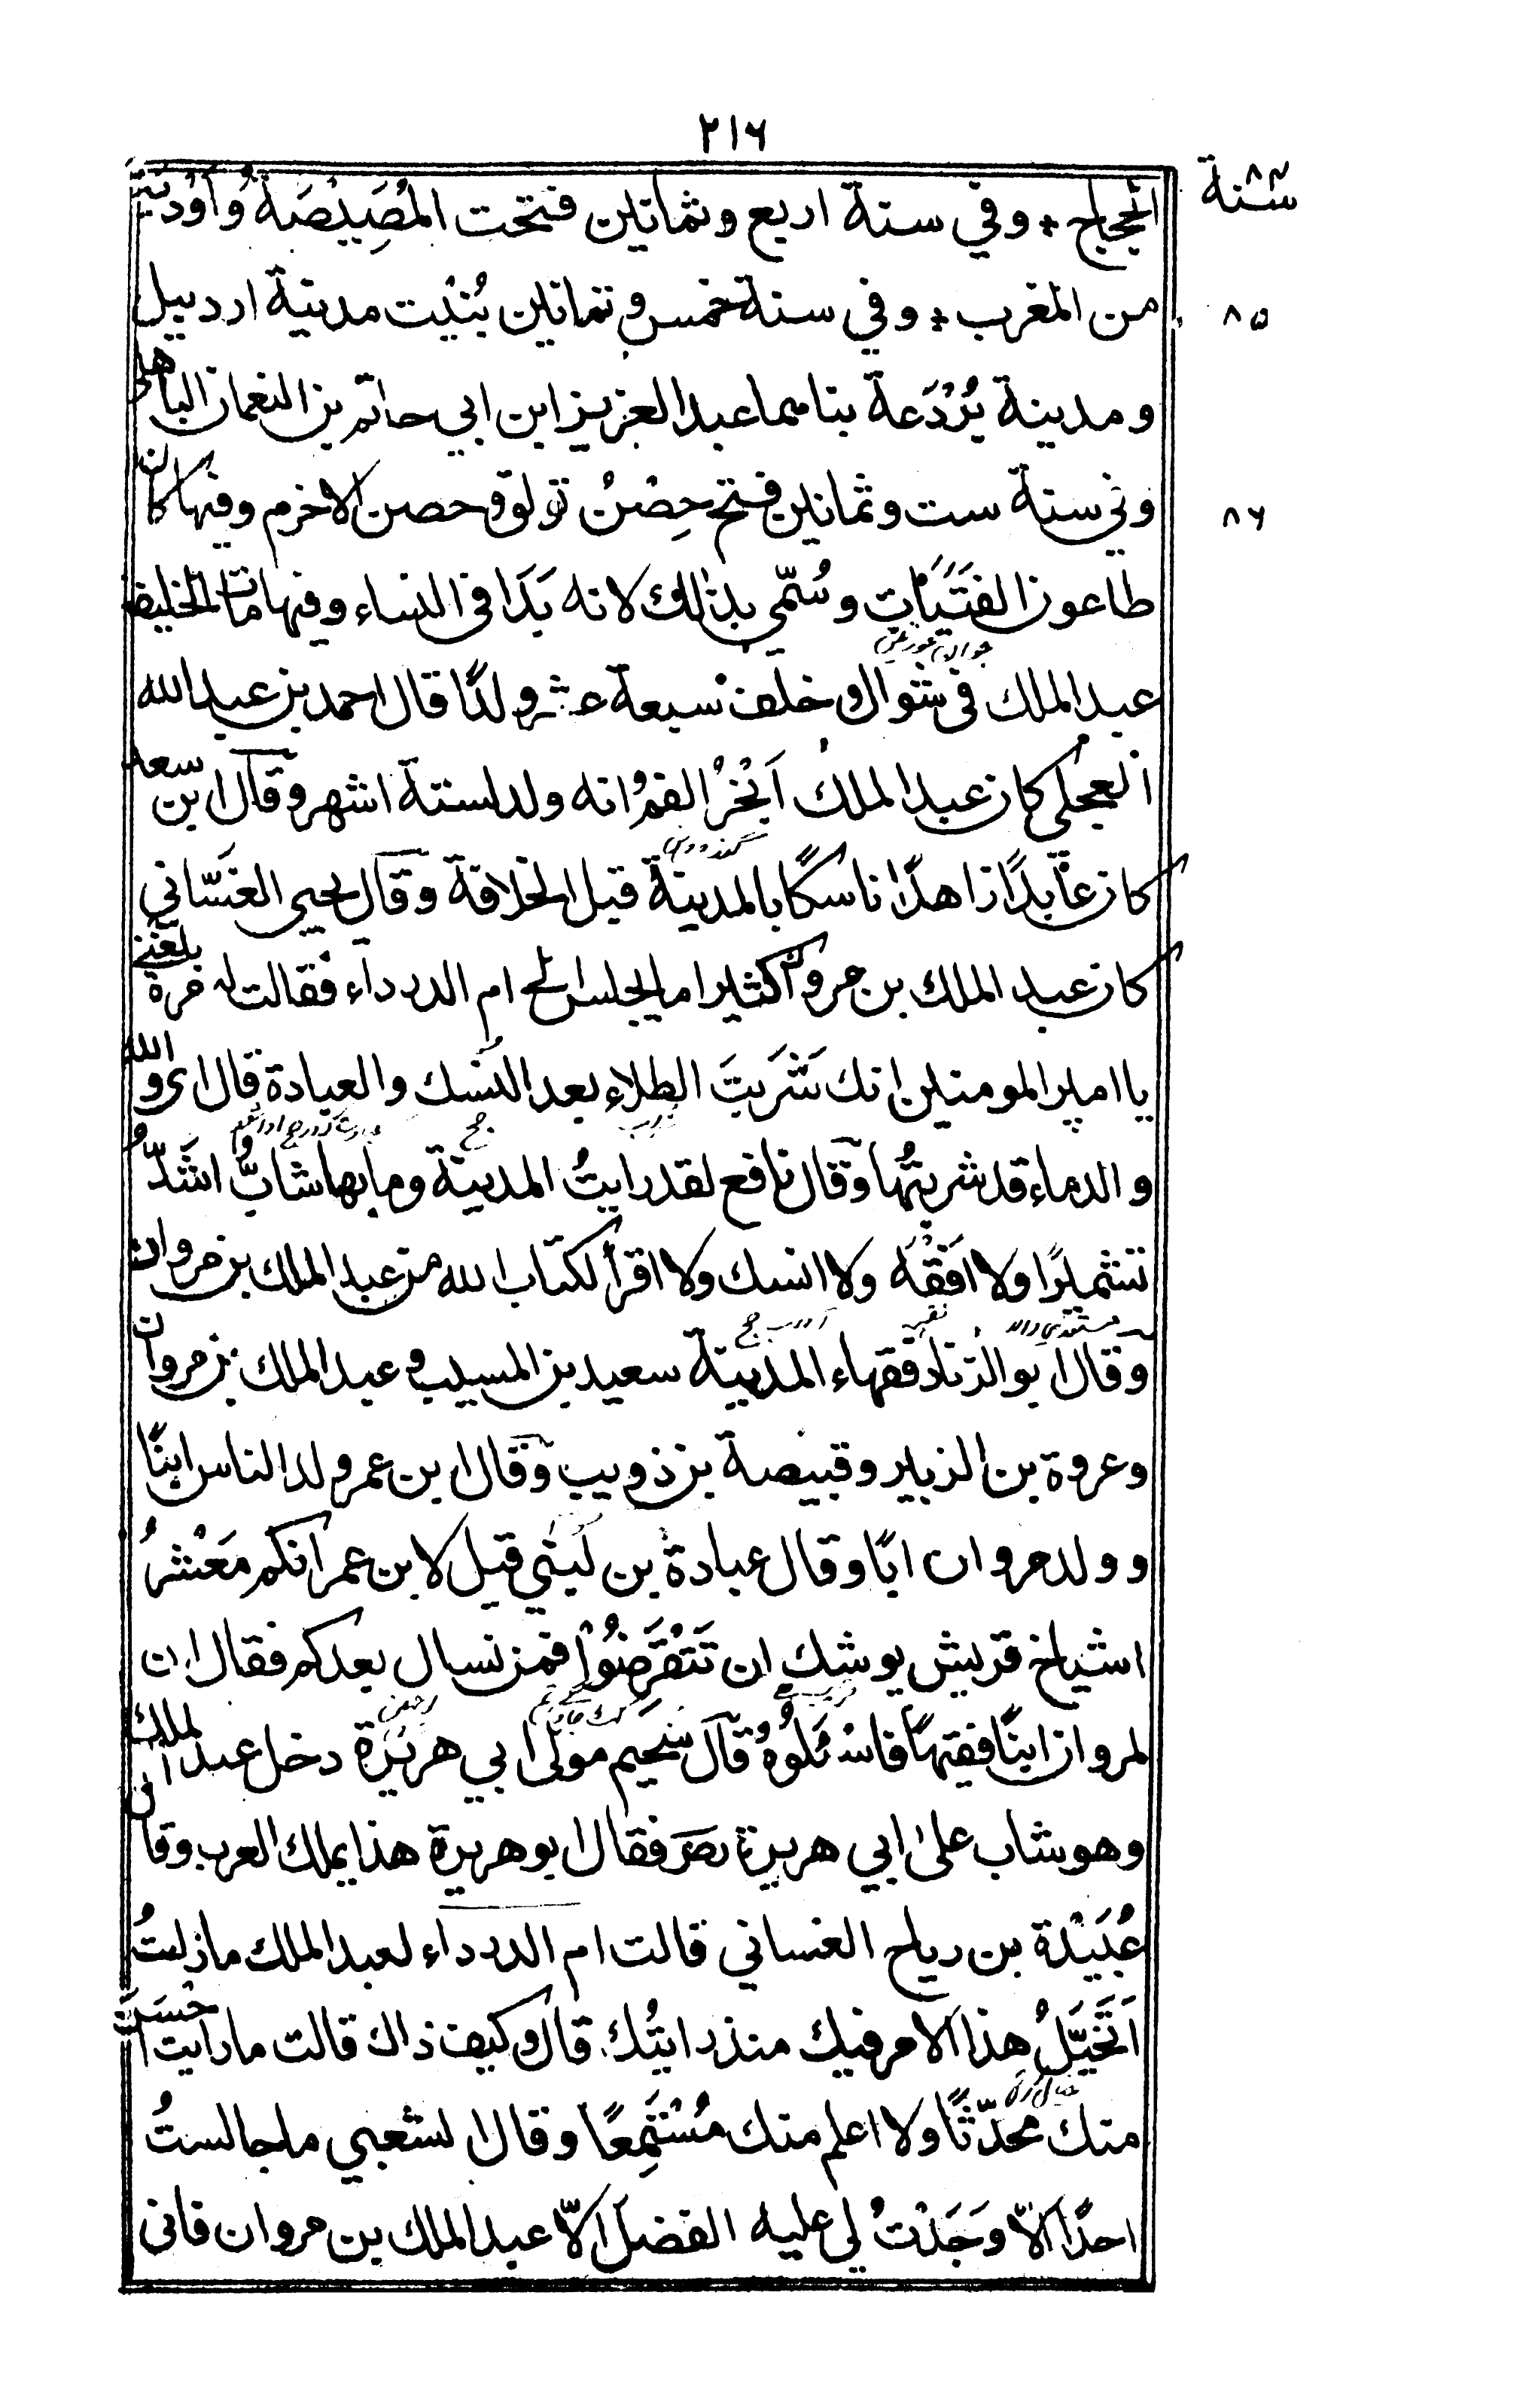 ٢١٦
سنة ٨٤
الحجاج * وفي سنة اربع وثمانين فتحت المُصَيْصَة واَوْدية
من المغرب * وفي سنة خمس وثمانين بُنْيت مدينة اردبيل
٨٥
ومدينة بَرْدَعة بناهما عبد العزيز ابن ابي حاتم بن النعمان الباهلي
وفي سنة ست وثمانين فتح حِصْنُ تولق وحصن الاخرم وفيها كان
٨٦
طاعون الفَتَيَات وسُمّي بذلك لانه بَدَا في النساء وفيها مات الخليفة
عبد الملك في شوال وخلف سبعة عشر ولدًا قال احمد بن عبد الله
العجلي كان عبد الملك اَبْخَرُ الفم وانه ولد لستة اشهر وقال ابن سعد
كان عابدًا زاهدًا ناسكًا بالمدينة قبل الخلافة وقال يحيى الغسّاني
كان عبد الملك بن مروان كثيرا ما يجلس الى ام الدرداء فقالت له مرة بلغني
يا امير المومنين انك شَرِبتَ الطلاء بعد النسك والعبادة قال اي والله
والدماء قد شربتُها وقال نافع لقد رايتُ المدينة وما بها شابٌّ اشَدُّ
تشميرًا ولا افقَهُ ولا انسك ولا اقرأ لكتاب الله من عبد الملك بن مروان
وقال ابو الزناد فقهاء المدينة سعيد بن المسيب وعبد الملك بن مروان
وعروة بن الزبير وقبيصة بن ذويب وقال ابن عمر ولد الناس ابنًا
وولد مروان ابًا وقال عبادة بن نُسَيّ قيل لابن عمر انكم مَعْشرُ
اشياخ قريش يوشك ان تَنْقَرَضُوْا فمن نسال بعدكم فقال ان
لمروان ابنًا فقيهًا فاسْئَلُوْهُ قال سُحَيم مولى ابي هريْرَة دخل عبد الملك
وهو شاب على ابي هريرة رضـ فقال ابو هريرة هذا يملك العرب وقال
عُبَيْدة بن رياح الغساني قالت ام الدرداء لعبد الملك مازلتُ
اَتَخَيَّلُ هذا الامر فيك منذ رايتُك قال وكيف ذاك قالت ما رايت احْسَنَ
منك محدّثًا ولا اعلم منك مُسْتَمِعًا وقال الشعبي ما جالستُ
احدًا الّا وَجَدْتُ لي عليه الفضل الّا عبد الملك بن مروان فاني